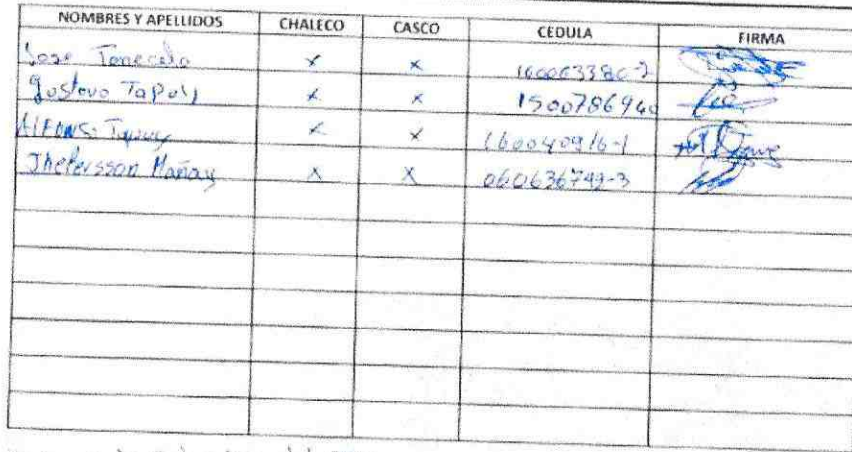 NOMBRES Y APELLIDOS CHALECO CASCO CEDULA FIRMA
Jose x x
Gustavo Tapuy x x 1500786940
Alfonso Tapuy x x 160040916-1
Jhefersson Mañay x x 060636749-3